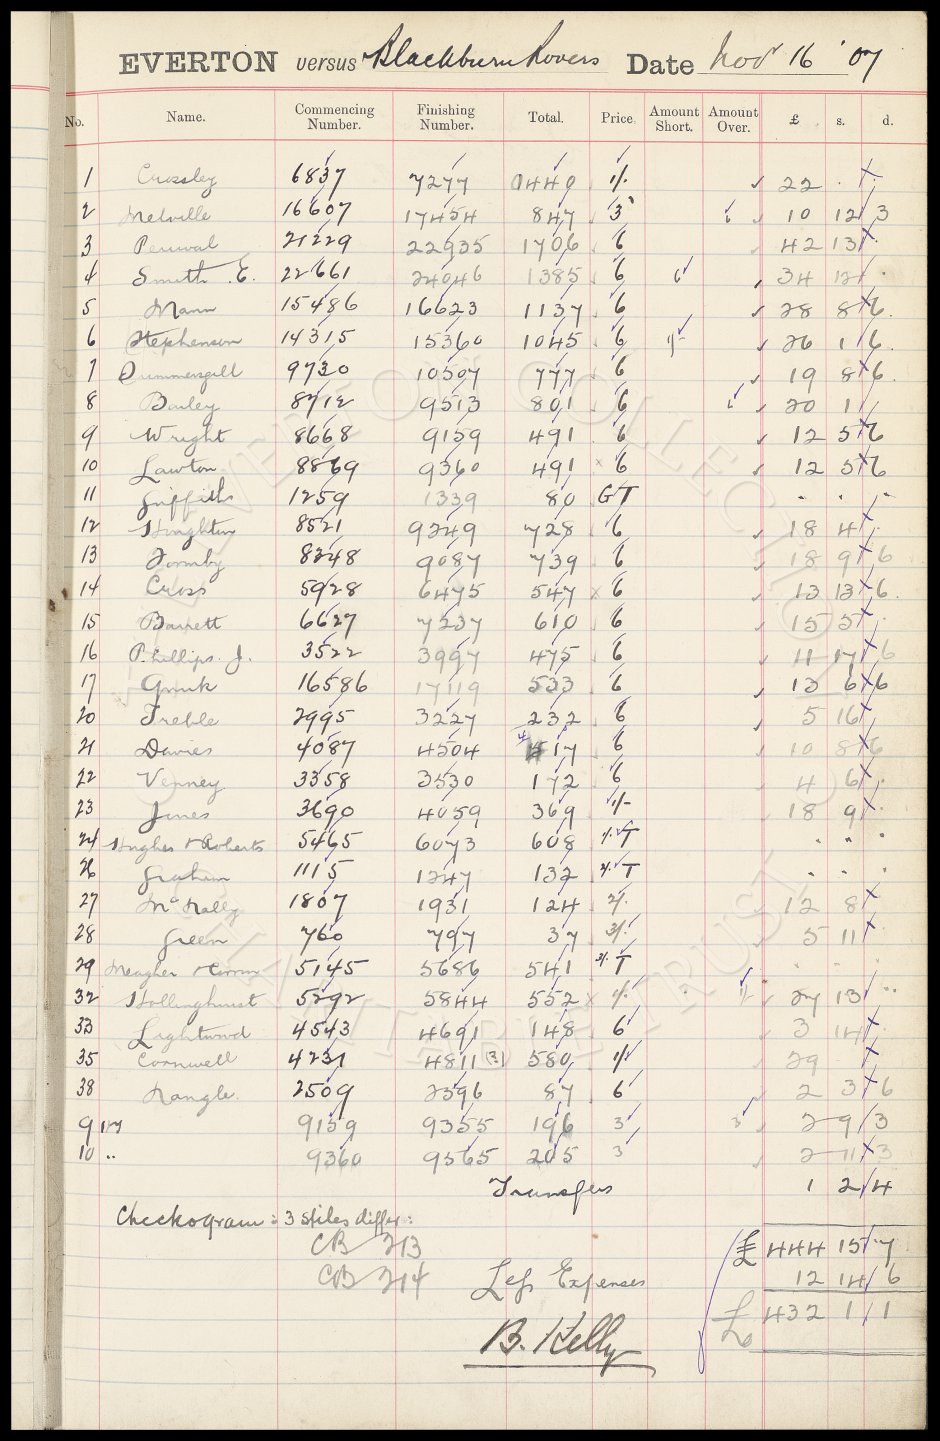 EVERTON versus Blackburn Rovers Date Nov 16 '07
No. Name. Commencing Number. Finishing Number. Total. Price. Amount Short. Amount Over. £ s. d.
1 Crossley 6837 7277 0440 1/- 22 . .
2 Melville 16607 17454 847 3 6 10 12 3
3 Percival 21229 22935 1706 6 42 13 .
4 Smith .E. 22661 24046 1385 6 6 34 12 .
5 Mann 15486 16623 1137 6 28 8 6.
6 Stephenson 14315 15360 1045 6 1/- 26 1 6.
7 Dummersgill 9730 10507 777 6 19 8 6.
8 Bailey 8712 9513 801 6 6 20 1 /
9 Wright 8668 9159 491 6 12 5 6
10 Lawton 8869 9360 491 x 6 12 5 6
11 Griffiths 1259 1339 80 GT . . .
12 Houghton 8521 9249 728 6 18 4 .
13 Formby 8348 9087 739 6 18 9 6
14 Cross 5928 6475 547 x 6 13 13 6.
15 Barrett 6627 7237 610 6 15 5 .
16 Phillips. J. 3522 3997 475 6 11 17 6
17 16586 17119 533 6 13 6 6
20 Treble 2995 3227 232 6 5 16
21 Davies 4087 4504 417 6 10 8 6
22 Venney 3358 3530 172 6 4 6 .
23 Jones 3690 4059 369 1/- 18 9 .
24 Hughes & Roberts 5465 6073 608 1/- T . . .
26 Graham 1115 1247 132 2/- T . . .
27 McNally 1807 1931 124 2/- 12 8
28 Green 760 797 37 3/- 5 11
29 Meagher & 5145 5686 541 2/- T . . .
32 Hollinghurst 5292 5844 552 x 1/- 1/- 27 13 ..
33 Lightwood 4543 4691 148 6 3 14 .
35 Cornwell 4231 4811 [?] 580 1/- 29 .
38 Nangle 2509 2596 87 6 2 3 6
9 9159 9355 196 3 3 2 9 3
10 " 9360 9565 205 3 2 11 3
Transfers 1 2 4
Checkogram: 3 stiles differ:
£ 444 15 7
CB 213
CB 214 Less Expenses 12 14 6
£ 432 1 1
B. Kelly
EVERTON COLLECTION CHARITABLE TRUST